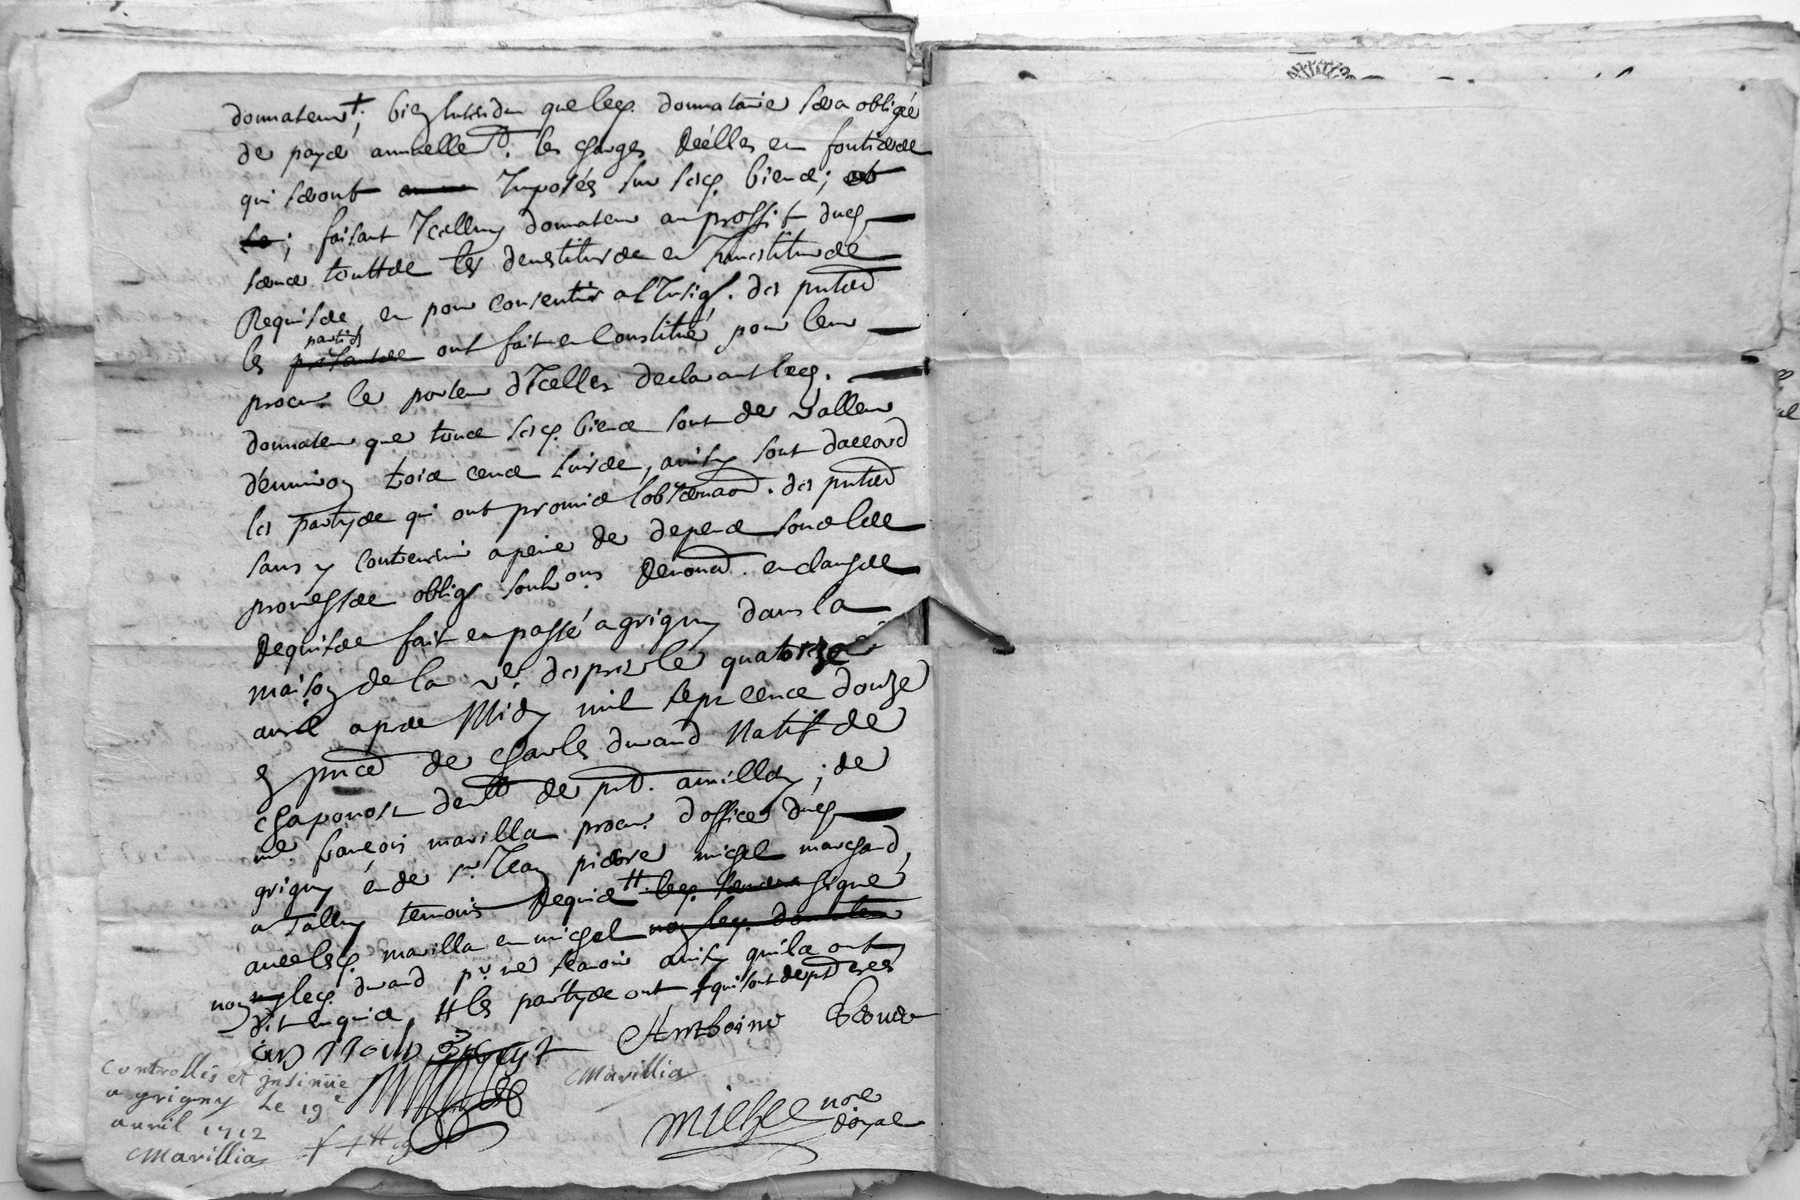 donnateur +; bien entendu que led. donnataire sera obligée
de payer annuellemt. les charges réelles en fontiere
qui seront Imposés sur sesd. biens; et
se; faisant Icelluy donnateur au proffit dud.
touttes les devestitures en Investitures
Requises en pour consentir a l'Insig. des pntes
les presantes parties ont fait en Constitué pour leur
procur. le porteur d'Icelles declarant led.
donnateur que tous sesd. biens sont de valleur
d'environ trois cens livres, ainsy sont d'accord
les partyes qui ont promis l'observaon. des pntes
sans y contrevenir a peine de depens sous les
promesses oblig. soubons. Renond. en clauses
Requises fait en passé a grigny dans la
maison de la ve. le quatorze
avril apres Midy mil sept cens douze
en pnce de charles durand Natif de
chaponost demt de pnt. a millery; de
me. françois marilla procur. d'office dud.
grigny en de sr. Jean pierre michel marchand
a Talluy temoins Requis ++ led. signé
avec lesd. marilla en michel non led.
non led. durand pr. ne scavoir ainsy qu'ils ont
dit enquis ++ les partyes ont + qui sont de pnt.
Anthoine
CMarillia
michel nore
Royal
Controllés et jnsinüé
a grigny Le 19e
avril 1712
CMarillia